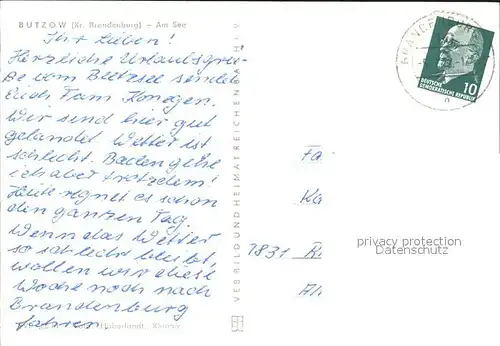 BUTZOW (Kr. Brandenburg) — Am See
Ihr Lieben!
Herzliche Urlaubsgrü-
ße vom Beetzsee senden
Euch Fam.
Wir sind hier gut
gelandet. Wetter ist
schlecht. Baden gehe
ich aber trotzdem!
Heute regnet es schon
den ganzen Tag.
Wenn das Wetter
so schlecht bleibt,
wollen wir diese
Woche noch nach
Brandenburg
fahren.
VEB BILD UND HEIMAT REICHENBACH I. V.
BRANDENBURG
10
DEUTSCHE
DEMOKRATISCHE REPUBLIK
Fa
Ka
7831
privacy protection
VERDATENSCHUTZ